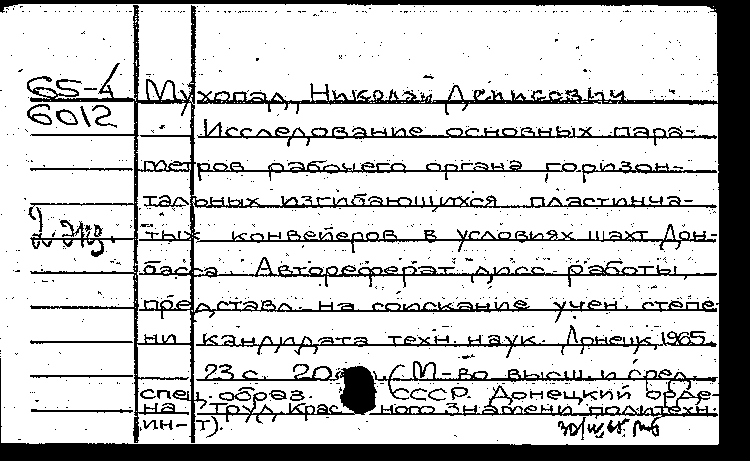 65-4
6012
Мухопад, Николай Денисович
Исследование основных пара-
метров рабочего органа горизон-
тальных изгибающихся пластинча-
2 экз.
тых конвейеров в условиях шахт Дон-
басса. Автореферат дисс. работы,
представл. на соискание учен. степе
ни кандидата техн. наук. Донецк, 1965.
23 с. 20 (М-во высш. и сред.
спец. образ. СССР. Донецкий орде-
на Труд. Крас ного Знамени политехн.
ин-т).